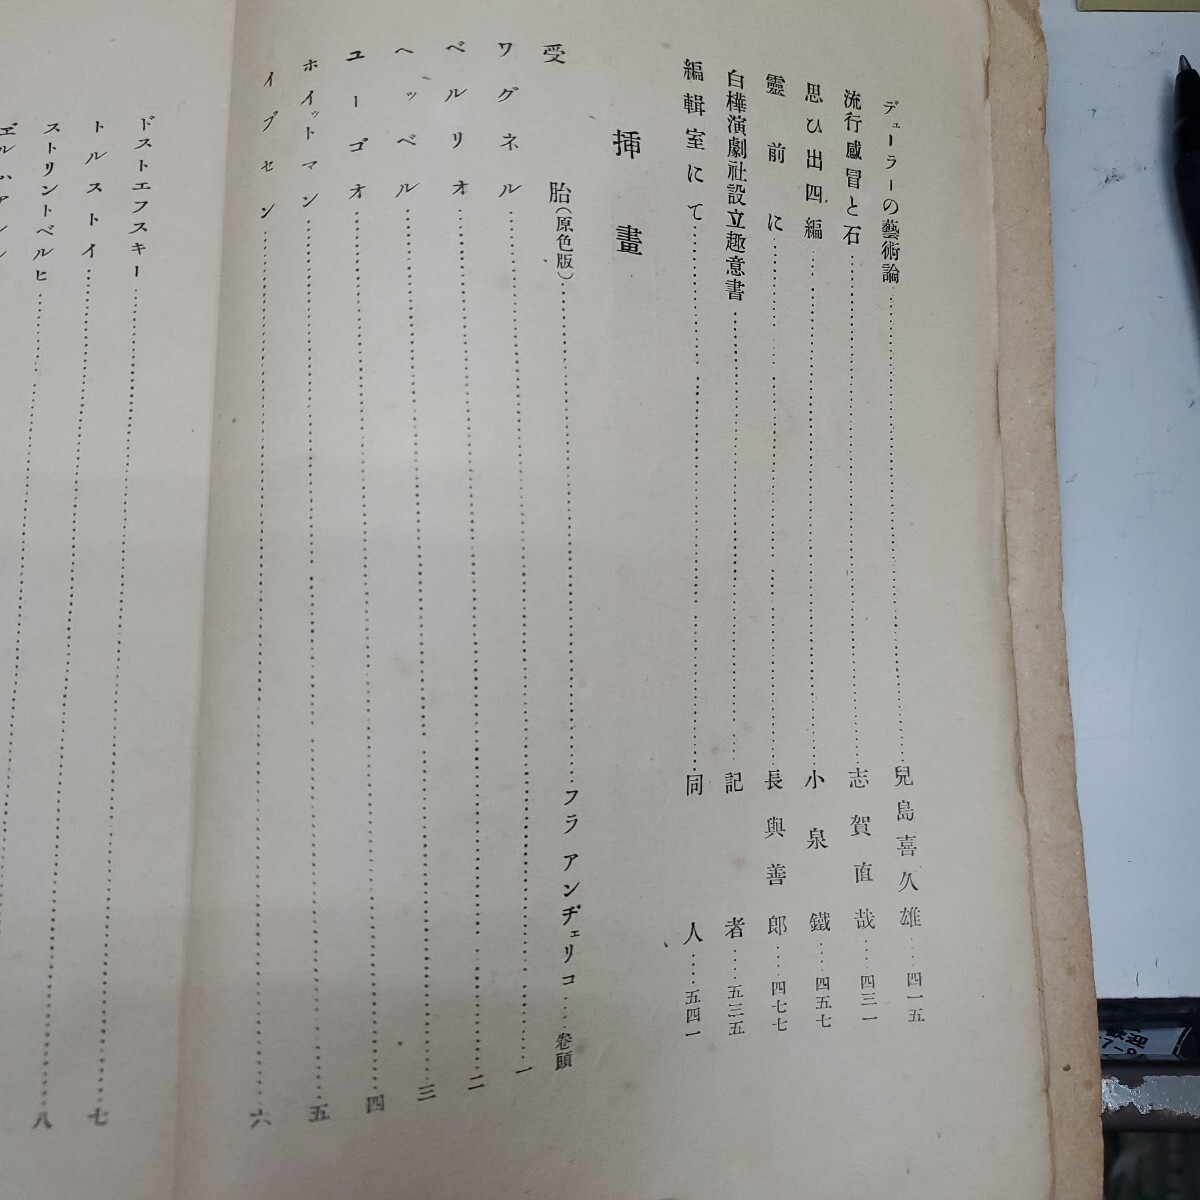 デューラーの藝術論……兒島喜久雄……四一五
流行感冒と石……志賀直哉……四三一
思ひ出四編……小泉鐵……四五七
靈前に……長與善郎……四七七
白樺演劇社設立趣意書……記者……五三五
編輯室にて……同人……五四一
挿畫
受胎(原色版)……フラ アンヂェリコ……卷頭
ワグネル……一
ベルリオ……二
ヘッベル……三
ユーゴオ……四
ホイットマン……五
イブセン……六
ドストエフスキー
トルストイ……七
ストリントベルヒ……八